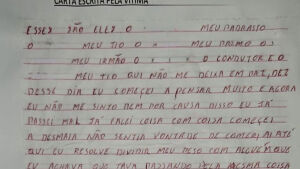 CARTA ESCRITA PELA VÍTIMA
ESSES SÃO ELLES O MEU PADRASTO
O MEU TIO O MEU PRIMO O
MEU IRMÃO O O CONDUTOR E O
MEU TIO QUE NÃO ME DEIXA EM PAZ, DEZ
DESSE DIA EU COMEÇEI A PENSAR MUITO E AGORA
EU NÃO ME SINTO BEM POR CAUSA DISSO EU JÁ
PASSEI MAL JÁ FALEI COISA COM COISA COMEÇEI
A DESMAIA NÃO SENTIA VONTADE DE COMER, AI ATÉ
QUI EU RESOLVE DIVIDIR MEU PESO COM ALGUÉM QUE
EU ACHAVA QUE TAVA PASSANDO PELA MESMA COISA